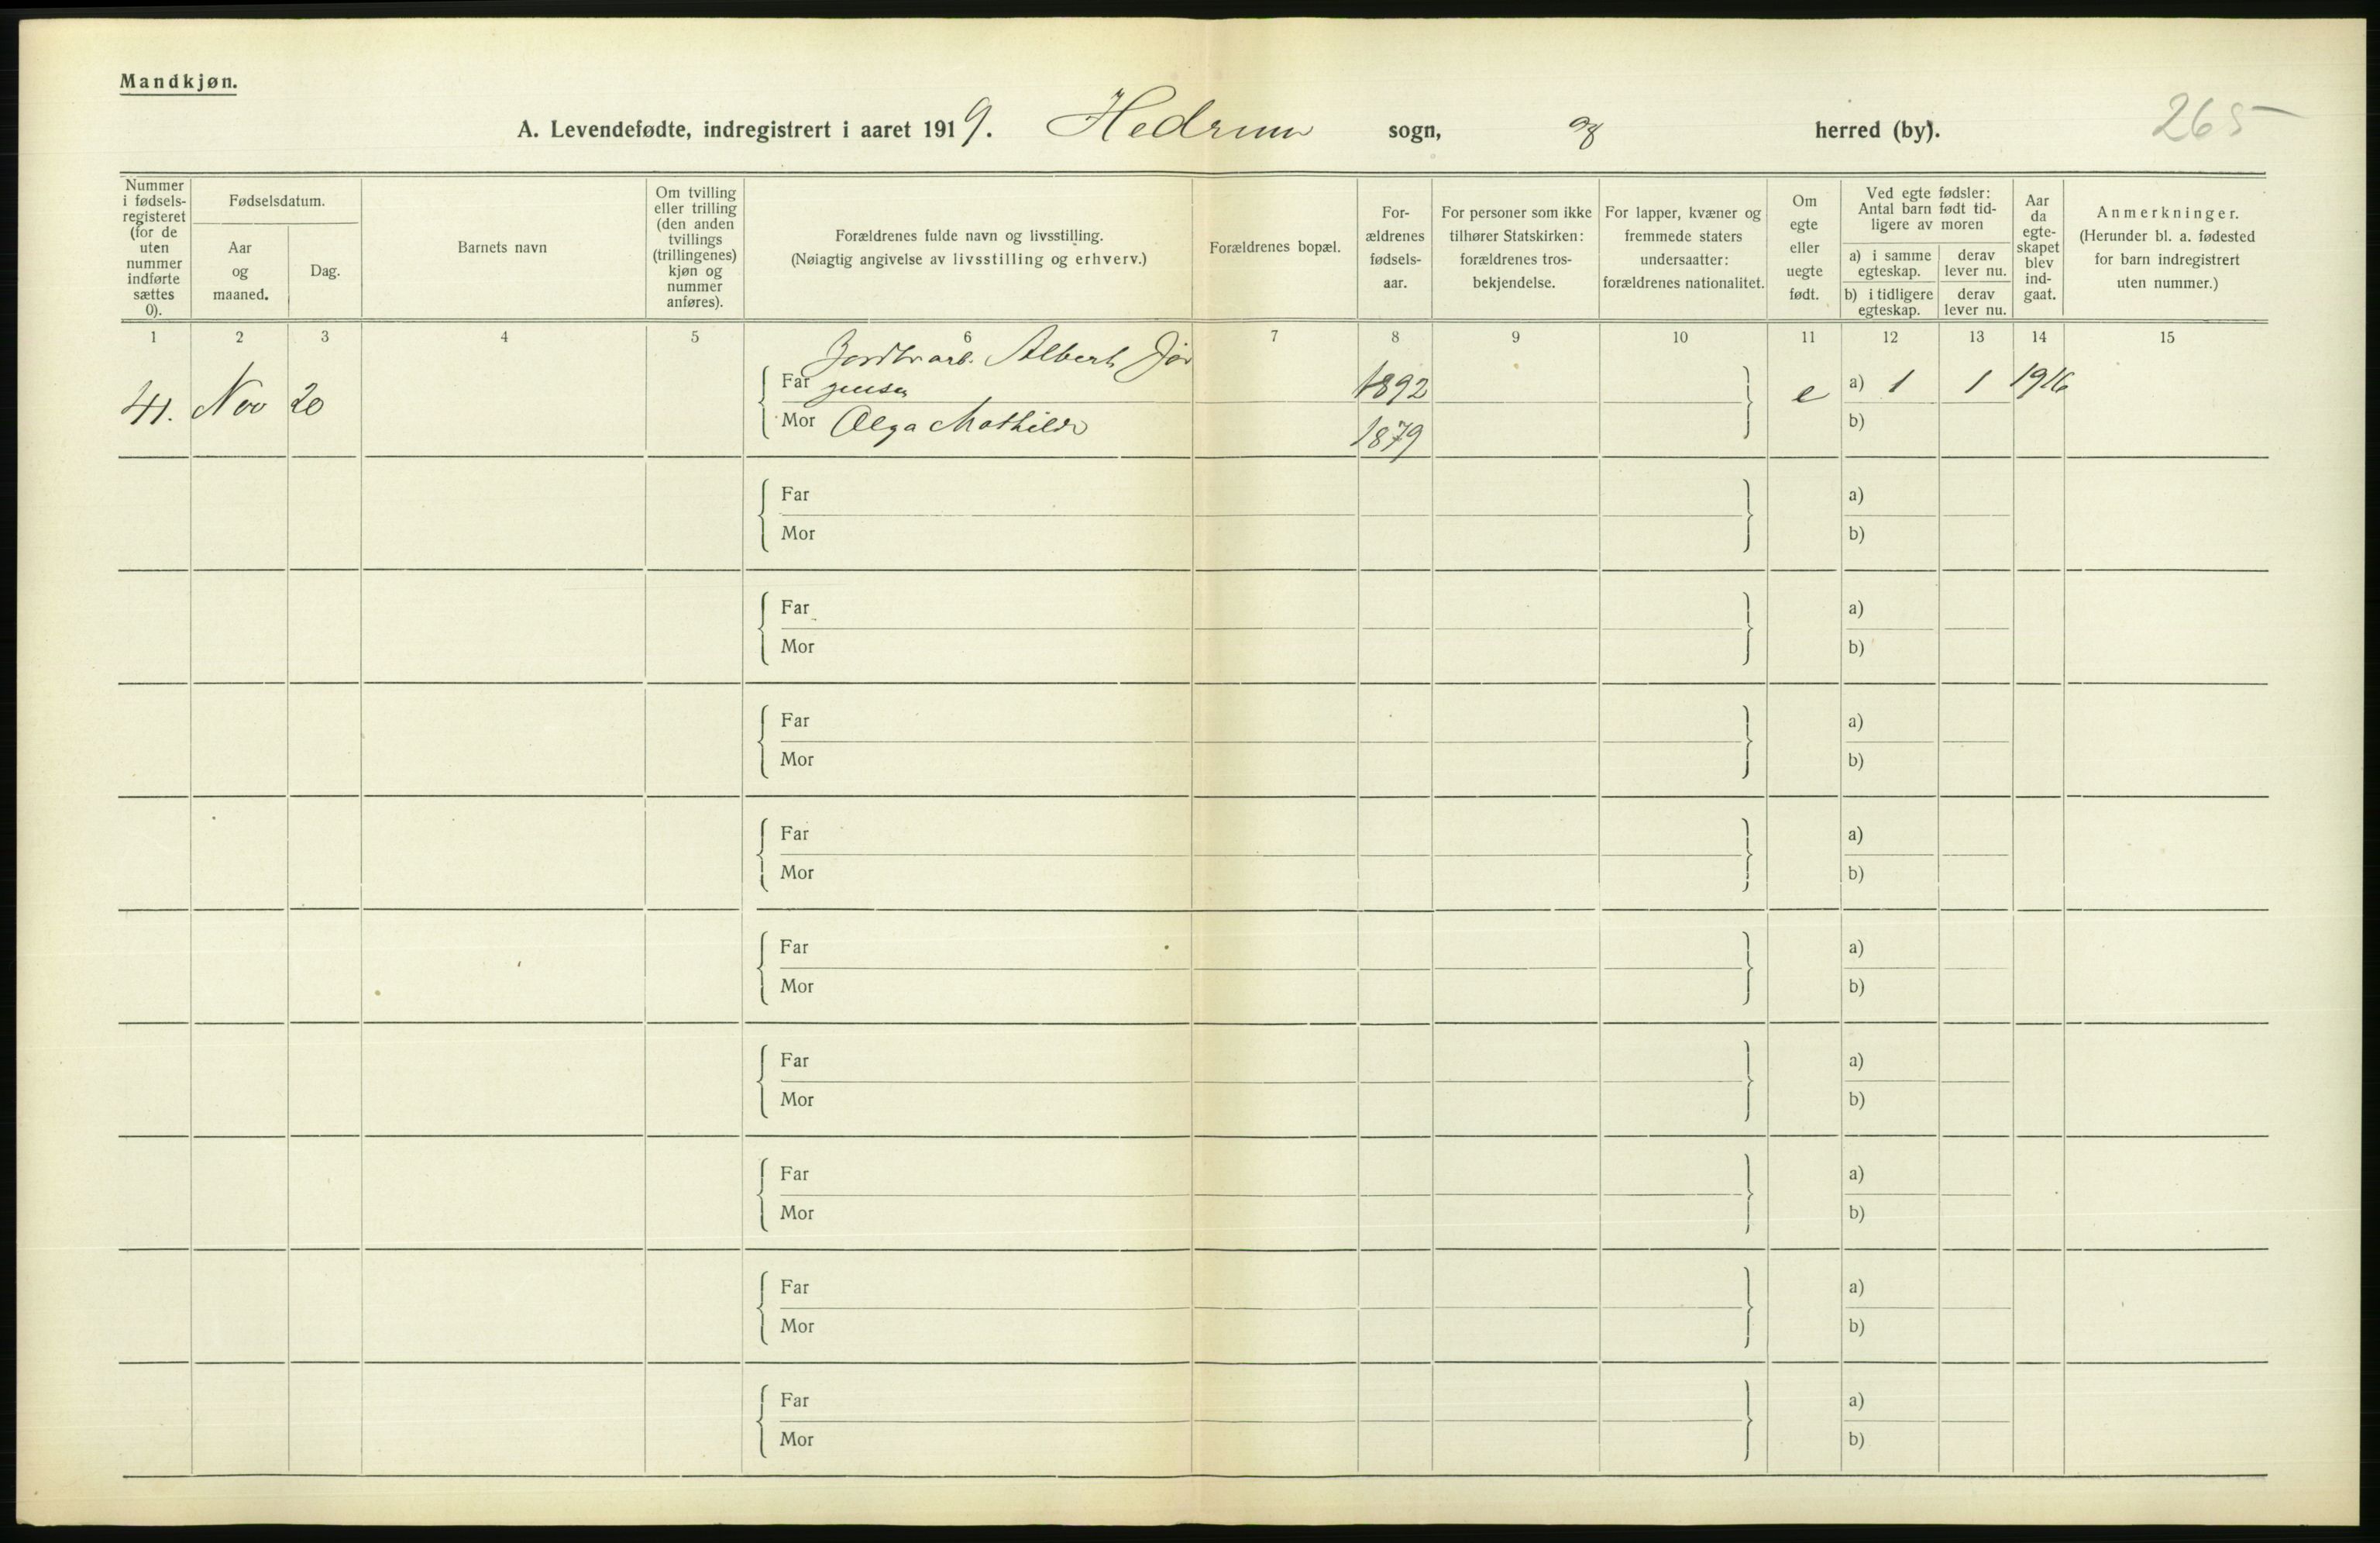 Mandkjøn.
A. Levendefødte, indregistrert i aaret 1919. Hedrum sogn, og herred (by).
265
Nummer i fødsels-registeret (for de uten nummer indførte sættes 0).
Fødselsdatum.
Aar og maaned.
Dag.
Barnets navn
Om tvilling eller trilling (den anden tvillings (trillingenes) kjøn og nummer anføres).
Forældrenes fulde navn og livsstilling.
(Nøiagtig angivelse av livsstilling og erhverv.)
Forældrenes bopæl.
For-ældrenes fødsels-aar.
For personer som ikke tilhører Statskirken: forældrenes tros-bekjendelse.
For lapper, kvæner og fremmede staters undersaatter: forældrenes nationalitet.
Om egte eller uegte født.
Ved egte fødsler: Antal barn født tid-ligere av moren
a) i samme egteskap.
derav lever nu.
b) i tidligere egteskap.
derav lever nu.
Aar da egte-skapet blev ind-gaat.
Anmerkninger.
(Herunder bl. a. fødested for barn indregistrert uten nummer.)
1 2 3 4 5 6 7 8 9 10 11 12 13 14 15
Jordbr arb. Albert Jør
41. Nov 20 Far gensen 1892 e a) 1 1 1916
Mor Olga Mathilde 1879 b)
Far a)
Mor b)
Far a)
Mor b)
Far a)
Mor b)
Far a)
Mor b)
Far a)
Mor b)
Far a)
Mor b)
Far a)
Mor b)
Far a)
Mor b)
Far a)
Mor b)